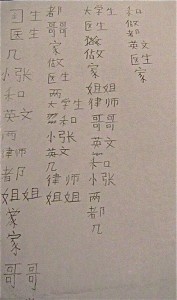 医生
几
小张
和
英文
两
律师
都
姐姐
家
家
哥哥
都
生
家
做
医生
两
大学生
和
小张
英文
几
律师
姐姐
大学生
医生
做
做
家
姐姐
律师
哥哥
英文
和
小张
两
都
几
和
做
都
英文
医生
家